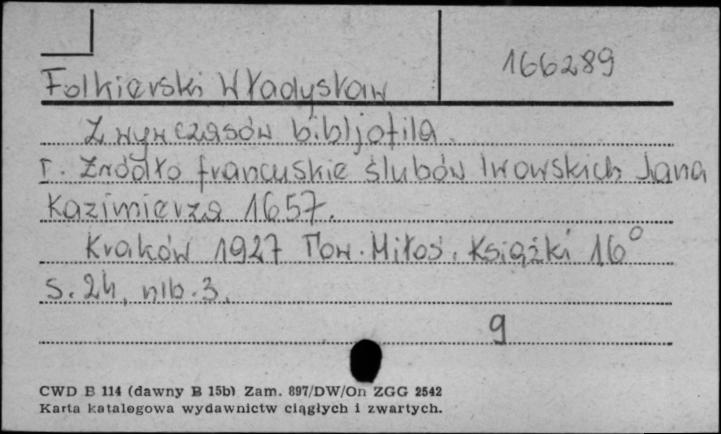 166289
Folkierski Władysław
Z wywczasów bibljofila.
I. Źródło francuskie ślubów lwowskich Jana
Kazimierza 1657.
Kraków 1927 Tow. Miłoś. Książki 16°
s. 24, nlb. 3.
9
CWD B 114 (dawny B 15b) Zam. 897/DW/On ZGG 2542
Karta katalogowa wydawnictw ciągłych i zwartych.